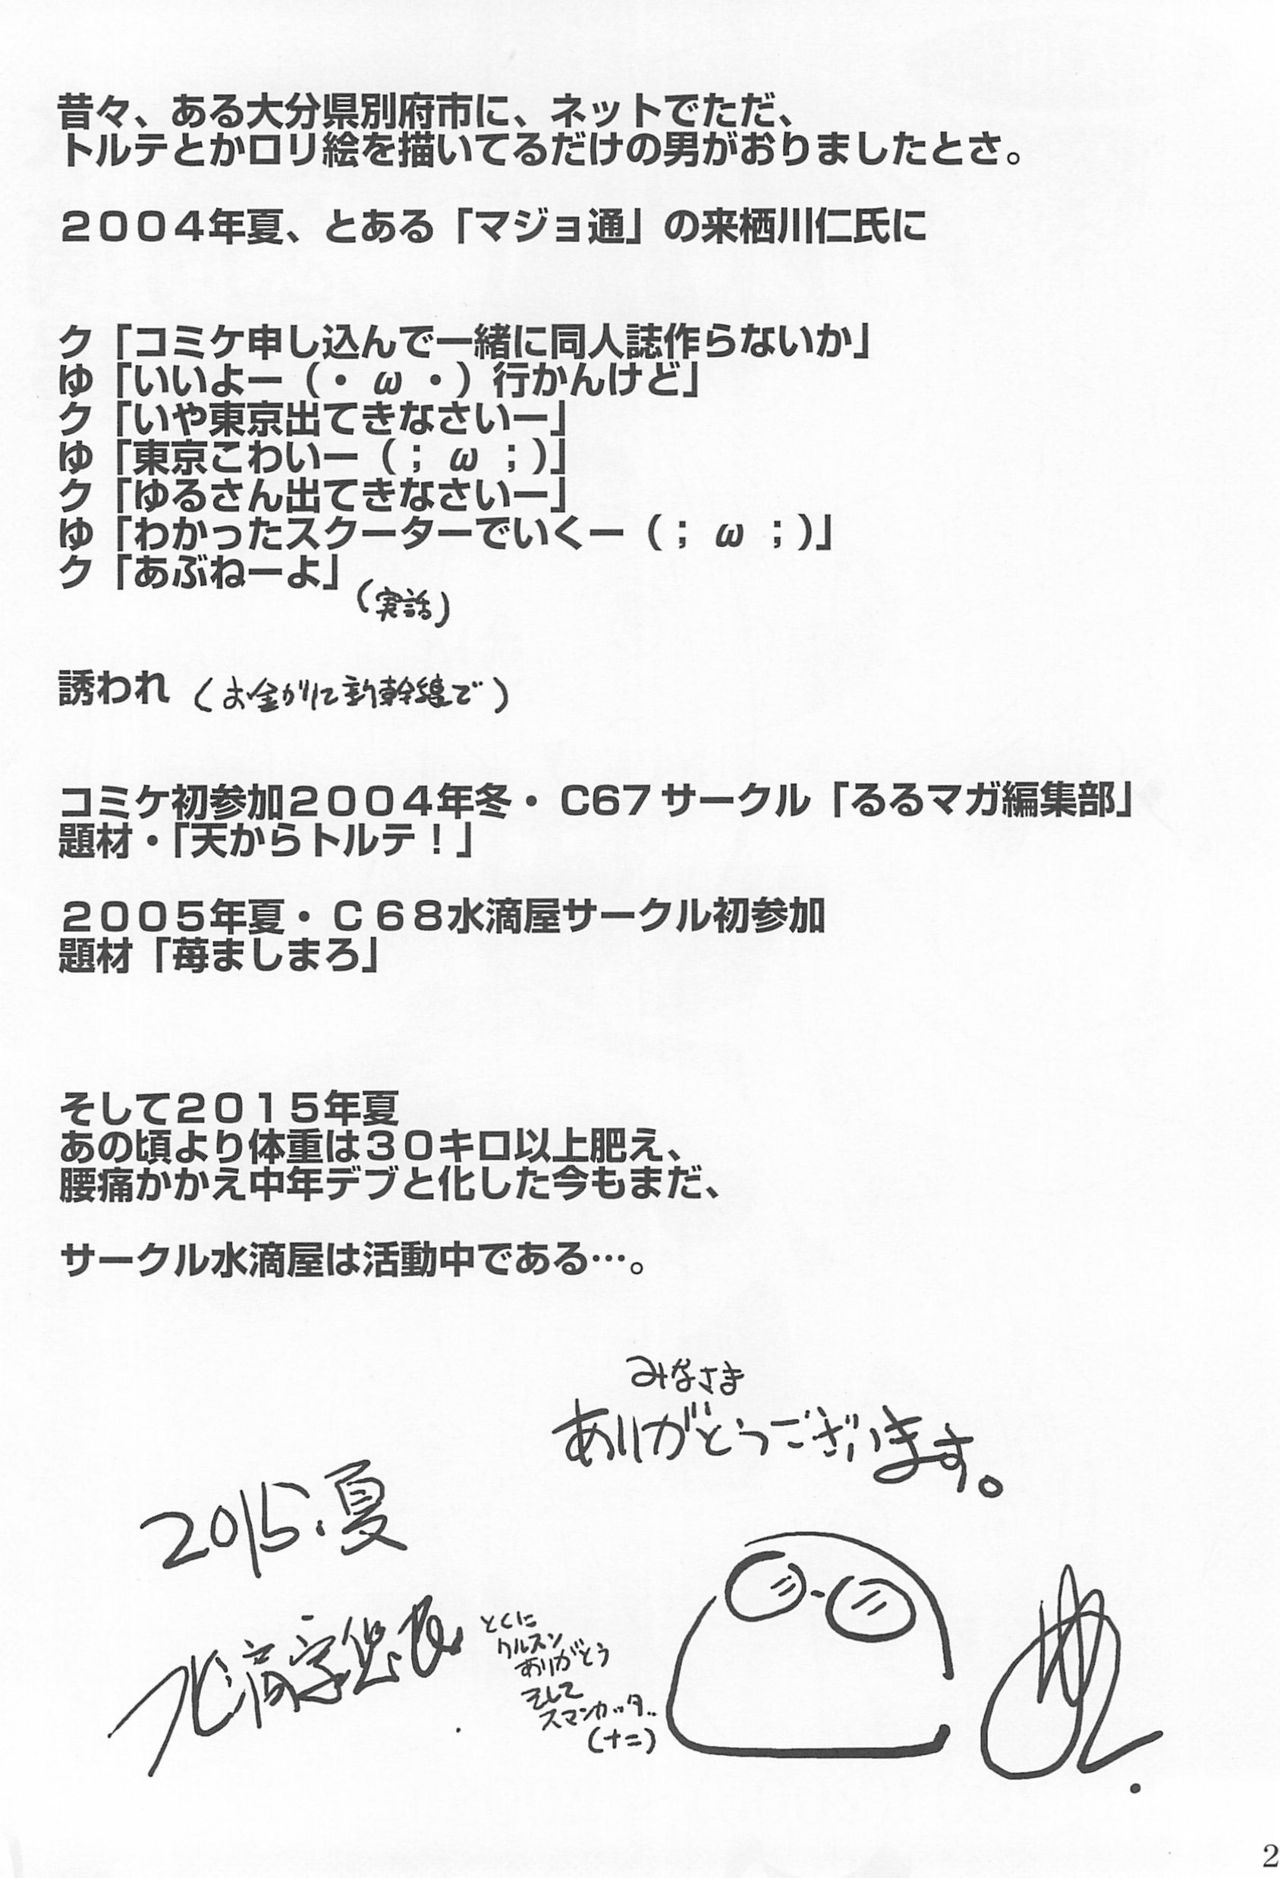 昔々、ある大分県別府市に、ネットでただ、
トルテとかロリ絵を描いてるだけの男がおりましたとさ。
２００４年夏、とある「マジョ通」の来栖川仁氏に
ク「コミケ申し込んで一緒に同人誌作らないか」
ゆ「いいよー（・ω・）行かんけど」
ク「いや東京出てきなさいー」
ゆ「東京こわいー（；ω；）」
ク「ゆるさん出てきなさいー」
ゆ「わかったスクーターでいくー（；ω；）」
ク「あぶねーよ」
（実話）
誘われ（お金かりに新幹線で）
コミケ初参加２００４年冬・C67サークル「るるマガ編集部」
題材・「天からトルテ！」
２００５年夏・Ｃ６８水滴屋サークル初参加
題材「苺ましまろ」
そして２０１５年夏
あの頃より体重は３０キロ以上肥え、
腰痛かかえ中年デブと化した今もまだ、
サークル水滴屋は活動中である…。
みなさま
ありがとうございます。
2015.夏
とくに
クルスン
ありがとう
そして
スマンカッタ..
2